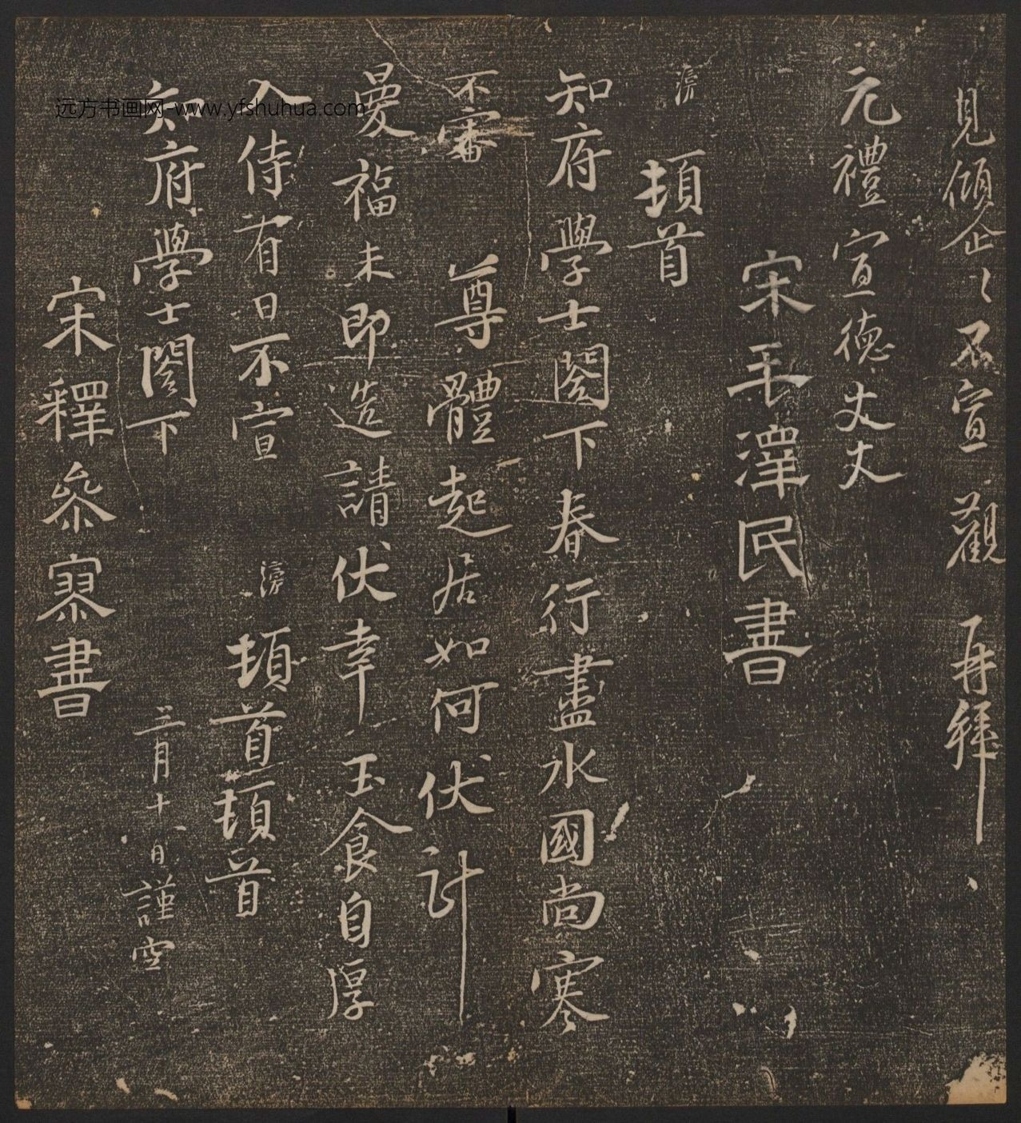 見傾企〻不宣 觀 再拜
元禮宣德丈丈
宋毛澤民書
滂 頓首
知府學士閤下春行盡水國尚寒
不審 尊體起居如何伏計
曼福未即造請伏幸玉食自厚
入侍有日不宣 滂 頓首頓首
知府學士閤下 三月十一日謹空
宋釋參寥書
远方书画网-www.yfshuhua.com